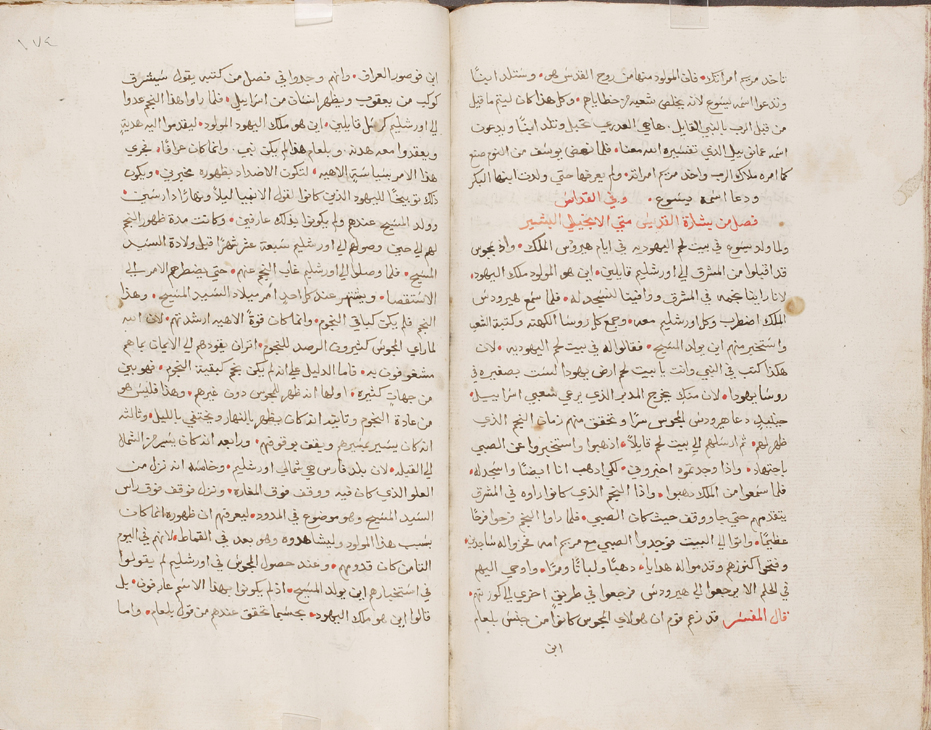 تاخد مريم امراتك • فان المولود منها من روح القدس هو • وستلد ابنًا
وتدعوا اسمه يسوع لانه يخلص شعبه من خطاياهم • وكل هذا كان ليتم ما قيل
من قبل الرب بالنبي القايل • هاهي العدري تحبل وتلد ابنًا ويدعون
اسمه عمانوييل الذي تفسيره الله معنا • فلما نهض يوسف من النوم صنع
كما امره ملاك الرب واخد مريم امراته • ولم يعرفها حتي ولدت ابنها البكر
ودعا اسمه يسوع • وفي القداس
فصل من بشارة القديس متي الانجيلي البشير •
ولما ولد يسوع في بيت لحم اليهوديه في ايام هيرودس الملك • واذ مجوس
قد اقبلوا من المشرق الي اورشليم قايلين • اين هو المولود ملك اليهود،
لانا راينا نجمه في المشرق ووافينا لنسجد له • فلما سمع هيرودس
الملك اضطرب وكل اورشليم معه • وجمع كل روسا الكهنه وكتبة الشعب
واستخبر منهم اين يولد المسيح • فقالوا له في بيت لحم اليهوديه • لان
هكذا كتب في النبي وانت يا بيت لحم ارض يهودا لست بصغيره في
روسا يهودا • لان منك يخرج المدبر الذي يرعي شعبي اسراييل •
حينيد دعا هيرودس المجوس سرًا وتحقق منهم زمان النجم الذي
ظهر لهم • ثم ارسلهم الي بيت لحم قايلًا • اذهبوا واستخبروا عن الصبي
باجتهاد • واذا وجدتموه اخبروني • لكي اذهب انا ايضًا واسجد له •
فلما سمعوا من الملك ذهبوا • واذا النجم الذي كانوا راوه في المشرق
يتقدمهم حتي جا ووقف حيث كان الصبي • فلما راوا النجم فرحوا فرحًا
عظيمًا • واتوا الي البيت فوجدوا الصبي مع مريم امه فخروا له ساجدين •
وفتحوا كنوزهم وقدموا له هدايا • دهبًا ولبانًا ومرًا • واوحي اليهم
في الحلم الا يرجعوا الي هيرودس فرجعوا في طريق اخري الي كورتهم •
قال المفسر قد زعم قوم ان هولاي المجوس كانوا من جنس بلعام
ابن
١٧٤
ابن فوصور العراف • وانهم وجدوا في فصل من كتبه يقول سيشرق
كوكب من يعقوب ويظهر انسان من اسراييل • فلما راوا هذا النجم غدوا
الي اورشليم قايلين • اين هو ملك اليهود المولود • ليقدموا اليه هدية
ويعقدوا معه هدنة • وبلعام هذا لم يكن نبي • وانما كان عرافًا • فجري
هذا الامر سياسة الاهيه • لتكون الاضداد بظهوره مخبرين • ويكون
ذلك توبيخًا لليهود الذين كانوا لقول الانبيا ليلًا ونهارًا دارسين •
وولد المسيح عندهم ولم يكونوا بذلك عارفين • وكانت مدة ظهور النجم
لهم الي حين وصولهم الي اورشليم سبعة عشر شهرًا قبل ولادة السيد
المسيح • فلما وصلوا الي اورشليم غاب النجم عنهم • حتي يضطرهم الامر الي
الاستقصا • ويشتهر عند كل احد امر ميلاد السيد المسيح • وهذا
النجم فلم يكن كباقي النجوم • وانما كان قوة الاهيه ارشدتهم • لان الله
لما راي المجوس كثيرون الرصد للنجوم • اثر ان يقودهم الي الايمان بما هم
مشغوفون به • فاما الدليل علي انه لم يكن نجم كبقية النجوم • فهو بين
من جهات كثيره • اولها انه ظهر للمجوس دون غيرهم • وهذا فليس هو
من عادة النجوم وثانيه انه كان يظهر بالنهار ويختفي بالليل • وثالثه
انه كان يسير بمسيرهم ويقف بوقوفهم • ورابعه انه كان يسير من الشمال
الي القبله • لان بلد فارس هي شمالي اورشليم • وخامسه انه نزل من
العلو الذي كان فيه ووقف فوق المغاره • ونزل فوقف فوق راس
السيد المسيح وهو موضوع في المدود • ليعرفهم ان ظهوره انما كان
بسبب هذا المولود وليشاهدوه وهو بعد في القماط • لانهم في اليوم
الثامن كان قدومهم • وعند حصول المجوس في اورشليم لم يقولوا
في استخبارهم اين يولد المسيح • اذ لم يكونوا بهذا الاسم عارفون • بل
قالوا اين هو ملك اليهود • بحسبما تحقق عندهم من قول بلعام • واما